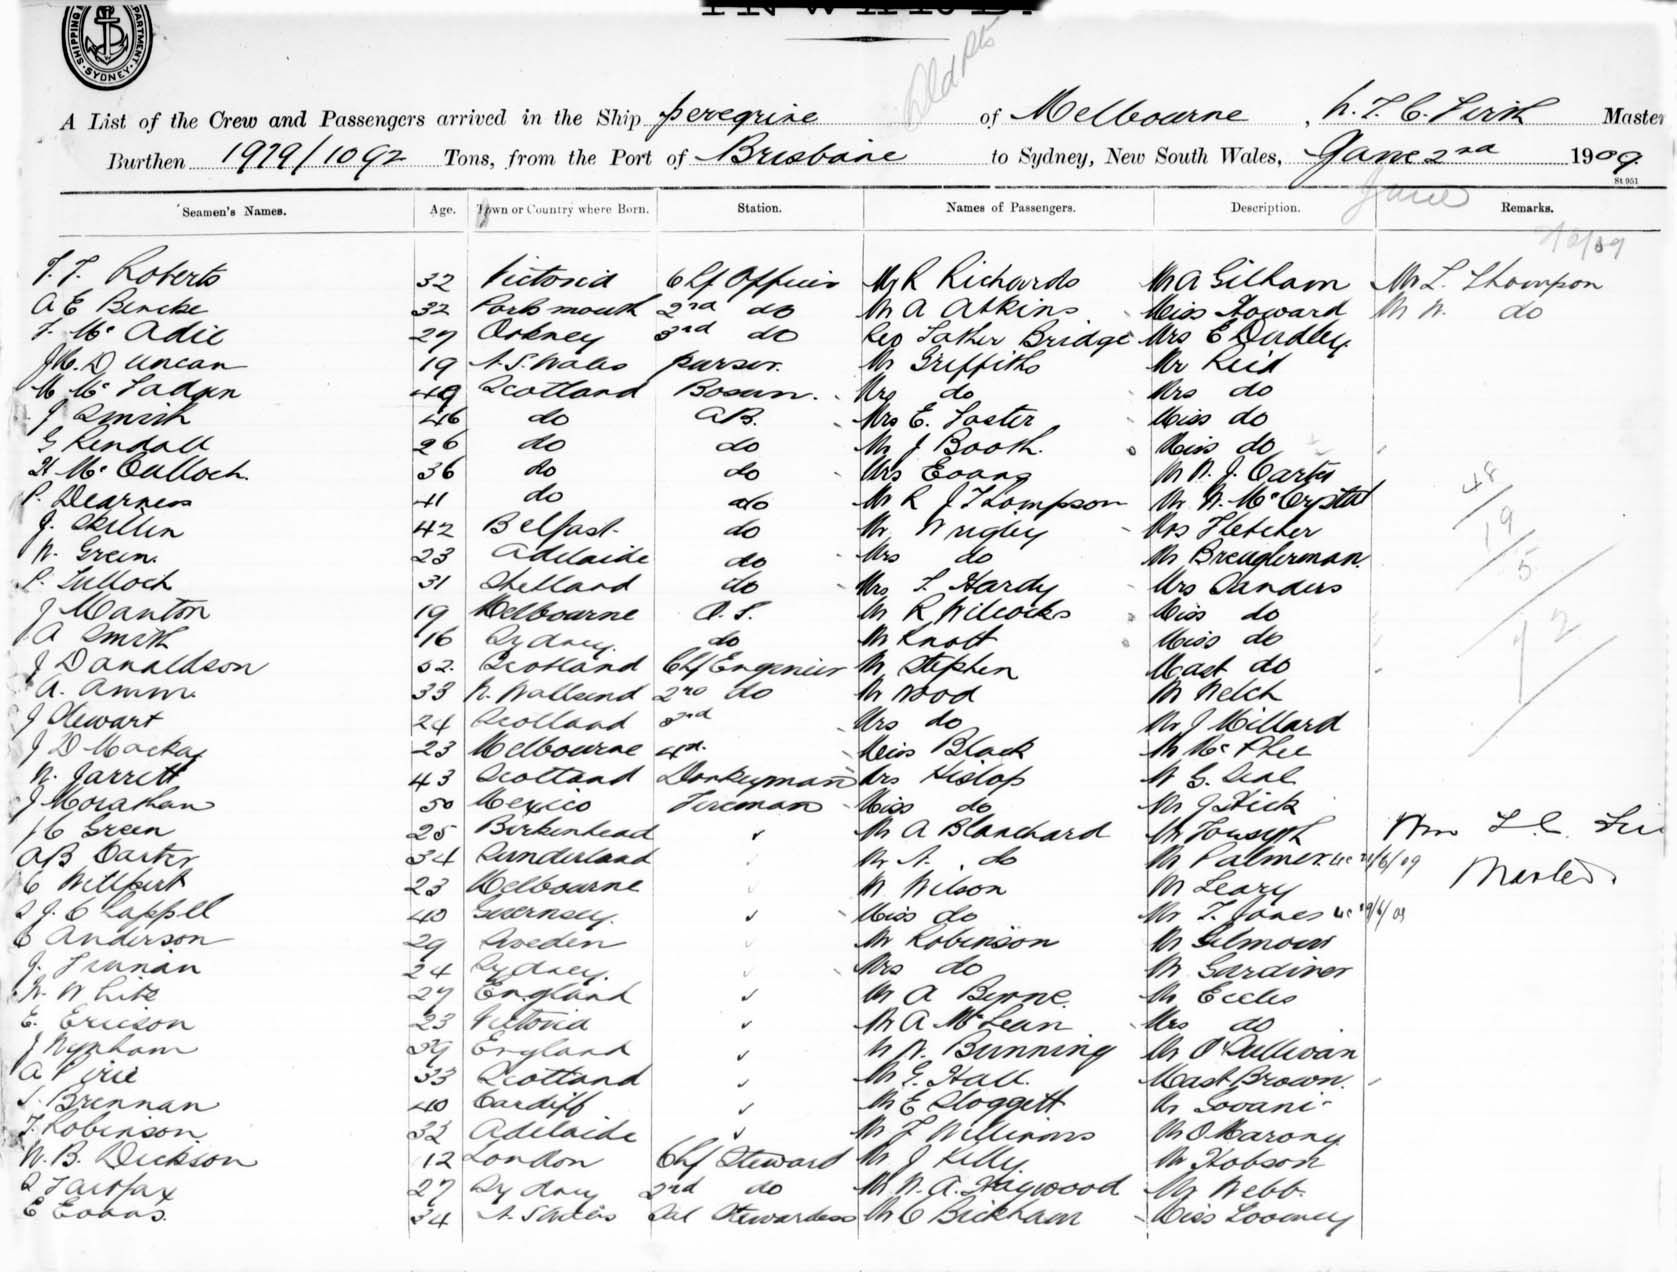 SHIPPING DEPARTMENT SYDNEY
Old Pts
A List of the Crew and Passengers arrived in the Ship peregrine of Melbourne, Master
Burthen 1929/1092 Tons, from the Port of Brisbane to Sydney, New South Wales, June 2nd 1909.
St.951
Seamen's Names. Age. Town or Country where Born. Station. Names of Passengers. Description. Remarks.
June
F. F. Roberts 32 Victoria Chf Officer Mr R Richards Mr A Gilham Mr L. Thompson
A E Bencke 32 Portsmouth 2nd do Mr A Atkins Miss Howard Mr W. do
F. Mc Adie 27 Orkney 3rd do Rev Father Bridge Mrs E Dudley
J M. Duncan 19 N.S. Wales purser. Mr Griffiths Mr Reid
M Mc Fadyn 49 Scotland Bosun. Mrs do Mrs do
J Smith 46 do AB. Mrs E. Foster Miss do
G Kendall 26 do do Mr J Booth. Miss do
H Mc Culloch. 36 do do Mrs Evans Mr W. J. Carter
P. Dearness 41 do do Mr R J Thompson Mr W. McCrystal
48
J. Skillin 42 Belfast. do Mr Wrigley Mrs Fletcher
19
W. Green. 23 Adelaide do Mrs do Mr Breuglerman.
5
P. Tulloch 31 Shetland do Mrs F. Hardy Mrs Sanders
J Manton 19 Melbourne O.S. Mr R Wilcocks Miss do
72
A Smith 16 Sydney. do Mr Knott Miss do
J Donaldson 52 Scotland Chf Engineer Mr Stephen Mast do
A. Amm. 33 N. Wallsend 2nd do Mr Wood Mr Welch
J Stewart 24 Scotland 3rd Mrs do Mr J Millard
J D Mackay 23 Melbourne 4th. Miss Black Mr Mc Phee
W. Jarrett 43 Scotland Donkeyman Mrs Hislop Mr G. Seal
J Morahan 50 Mexico Fireman Miss do Mr J Hick
J C Green 25 Birkenhead ✓ Mr A Blanchard Mr Forsyth Wm F. C.
A B Carter 34 Sunderland Mr A. do Mr Palmer. /6/09
C Willpert 23 Melbourne Mr Wilson Mr Leary Master.
S J. Chappell 40 Guernsey. ✓ Miss do Mr F. Jones /6/09
C Anderson 29 Sweden Mr Robinson Mr Gilmour
J. 24 Sydney. Mrs do Mr Gardiner
W. White 27 England ✓ Mr A Byrne. Mr Eccles
E. Ericson 23 Victoria ✓ Mr A McLean Mrs do
J Wynham 39 England ✓ Mr W. Bunning Mr O'Sullivan
A Pirie 33 Scotland ✓ Mr G. Hall. Mast Brown.
Brennan 40 Cardiff ✓ Mr E Sloggett Mr
F. Robinson 33 Adelaide ✓ Mr F Williams Mr O'Marony
W. B. Dickson 42 London Chf Steward Mr J Kelly. Mr Hobson
Fairfax 27 Sydney 2nd do Mr W. A. Haywood Mr Webb.
E Evans. 34 N. S Wales Sal Stewardess Mr C Bickham Miss Looney